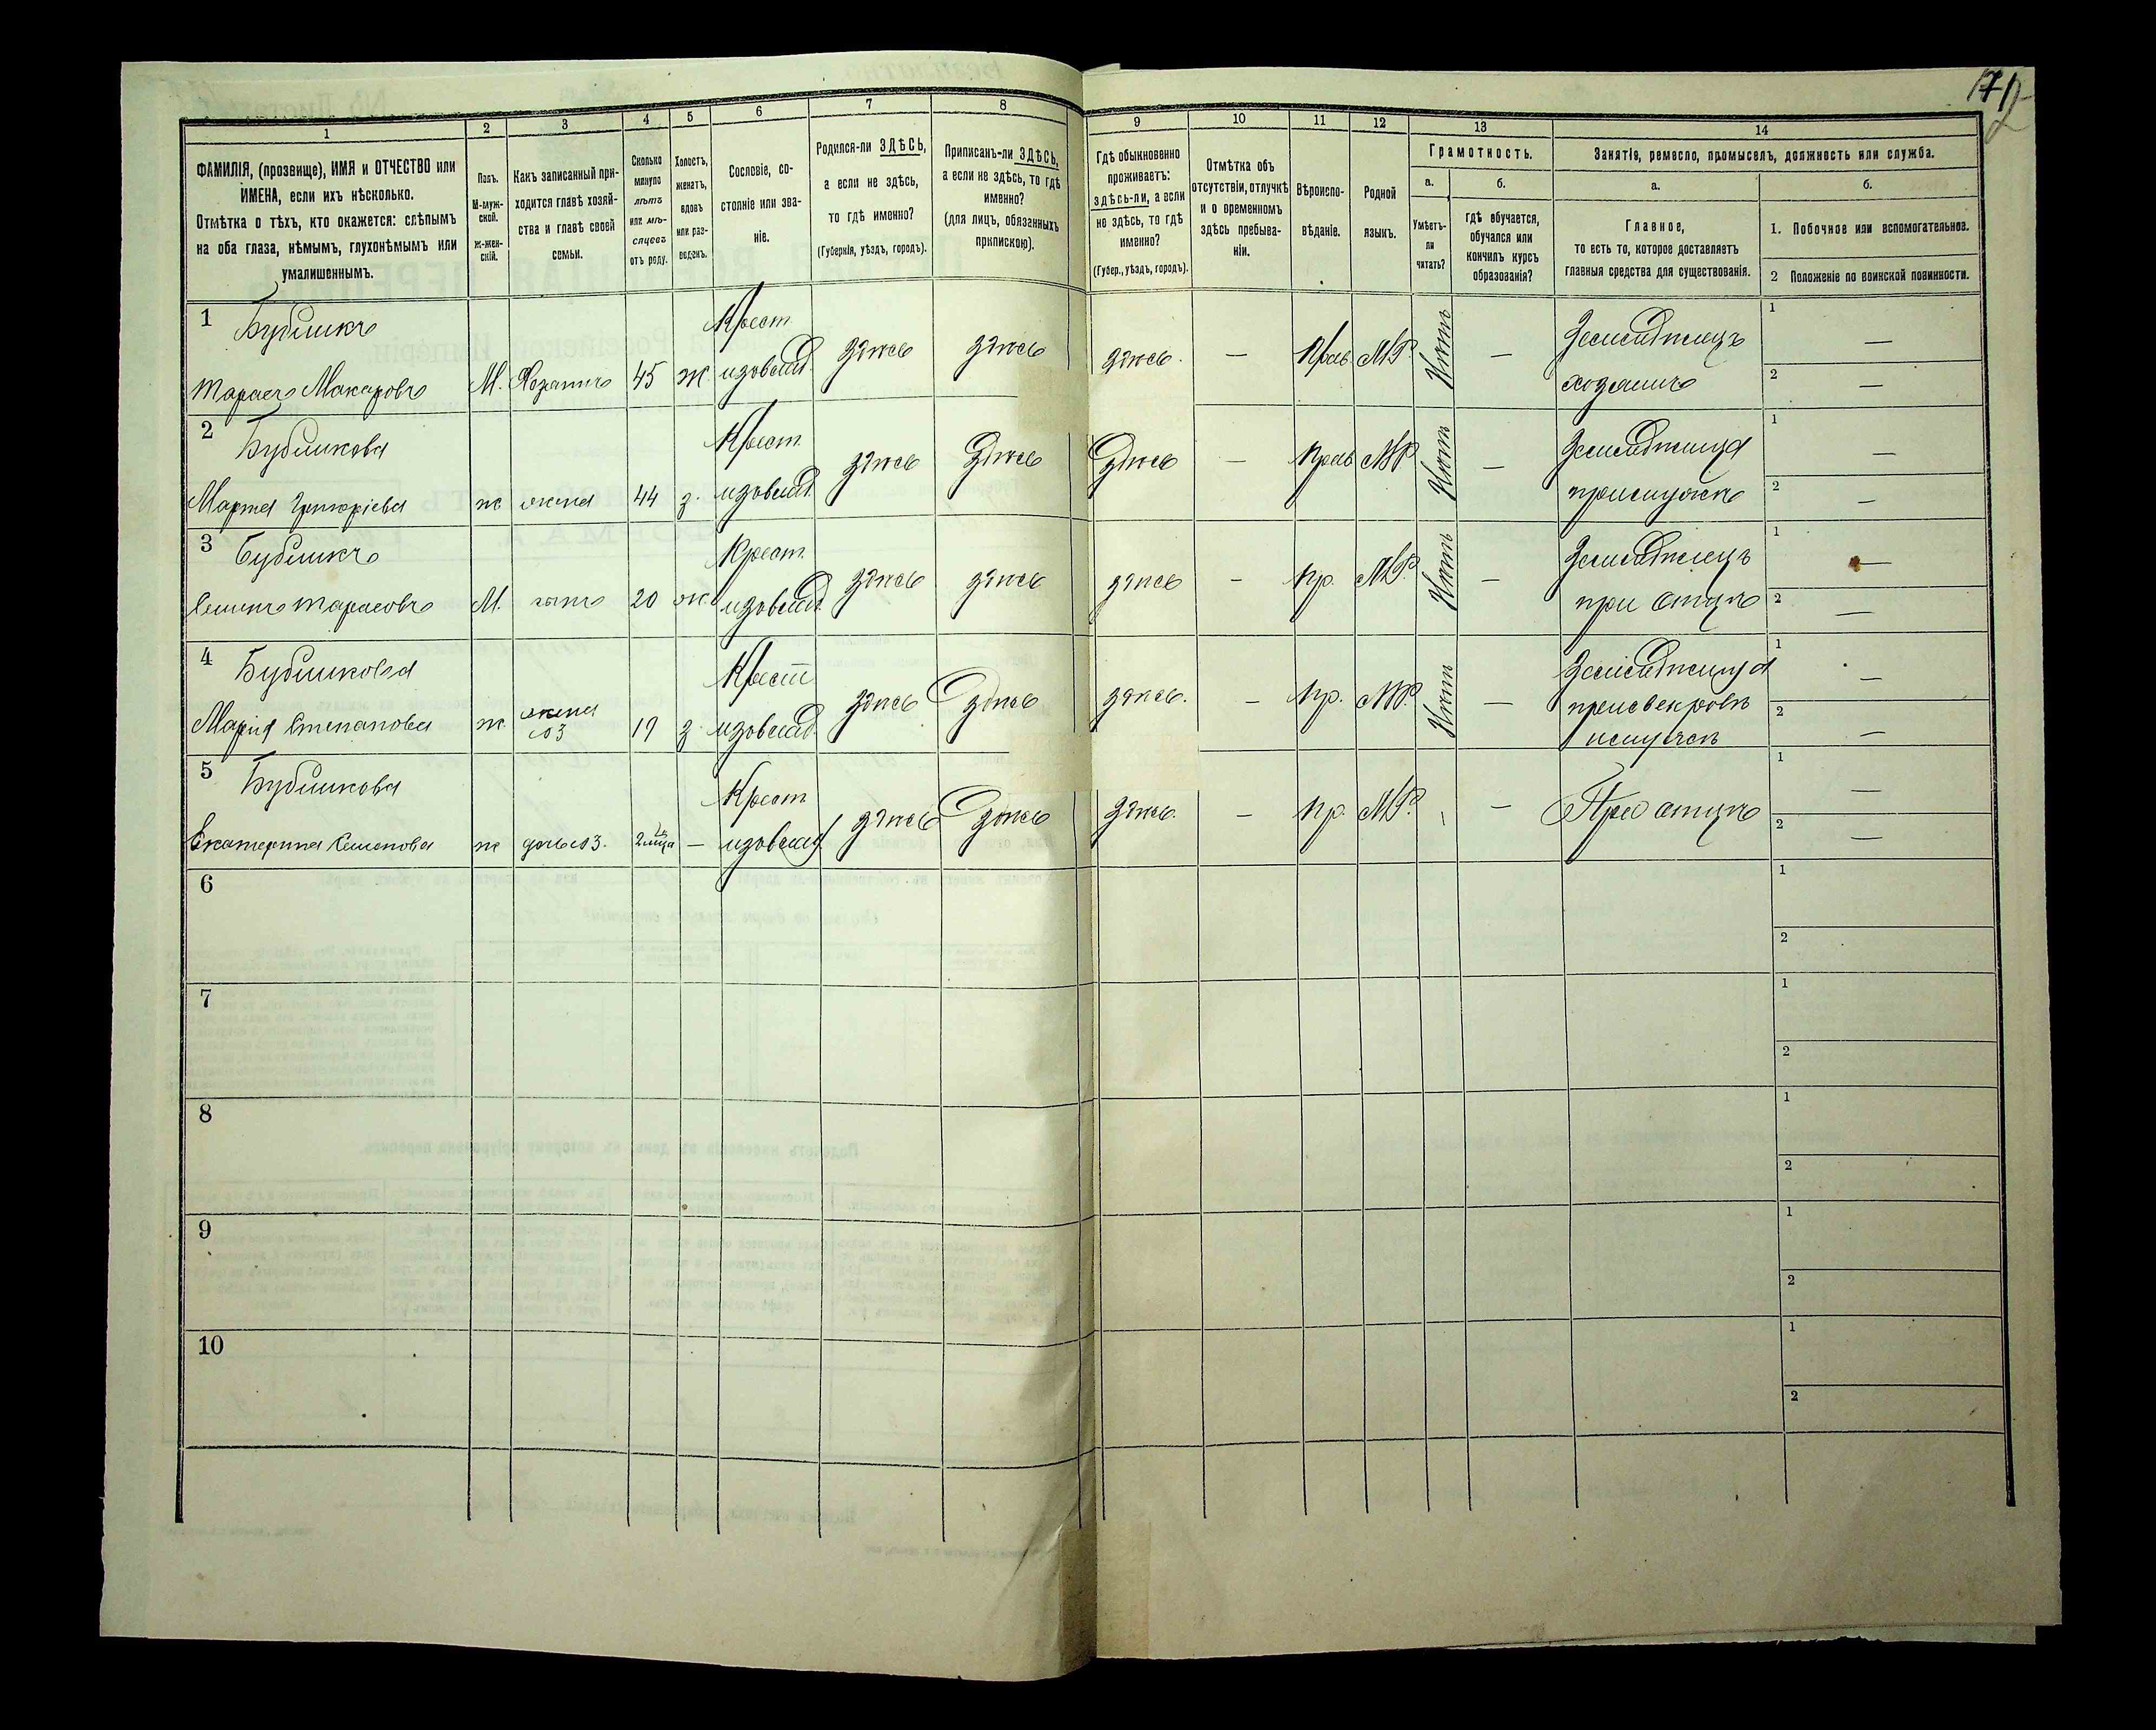 172
1 2 3 4 5 6 7 8 9 10 11 12 13 14
ФАМИЛІЯ, (прозвище), ИМЯ и ОТЧЕСТВО или
ИМЕНА, если ихъ нѣсколько.
Отмѣтка о тѣхъ, кто окажется: слѣпымъ
на оба глаза, нѣмымъ, глухонѣмымъ или
умалишеннымъ.
Полъ.
М-муж-
ской.
Ж-жен-
скій.
Какъ записанный при-
ходится главѣ хозяй-
ства и главѣ своей
семьи.
Сколько
минуло
лѣтъ
или мѣ-
сяцевъ
отъ роду.
Холостъ,
женатъ,
вдовъ
или раз-
веденъ.
Сословіе, со-
стояніе или зва-
ніе.
Родился-ли ЗДѢСЬ,
а если не здѣсь,
то гдѣ именно?
(Губернія, уѣздъ, городъ).
Приписанъ-ли ЗДѢСЬ,
а если не здѣсь, то гдѣ
именно?
(для лицъ, обязанныхъ
припискою).
Гдѣ обыкновенно
проживаетъ:
здѣсь-ли, а если
не здѣсь, то гдѣ
именно?
(Губер., уѣздъ, городъ).
Отмѣтка объ
отсутствіи, отлучкѣ
и о временномъ
здѣсь пребыва-
ніи.
Вѣроиспо-
вѣданіе.
Родной
языкъ.
Грамотность.
а. б.
Умѣетъ-
ли
читать?
гдѣ обучается,
обучался или
кончилъ курсъ
образованія?
Занятіе, ремесло, промыселъ, должность или служба.
а. б.
Главное,
то есть то, которое доставляетъ
главныя средства для существованія.
1. Побочное или вспомогательное.
2 Положеніе по воинской повинности.
1 Бубликъ Крест. 1 —
Тарасъ Макаровъ М. Хозяинъ 45 ж. здѣсь здѣсь здѣсь. — Прав. М.Р. Нѣтъ — хозяинъ 2 —
2 Бубликова Крест. 1 —
Марфа Григоріева ж жена 44 з. здѣсь здѣсь здѣсь — Прав М.Р. Нѣтъ — при мужѣ 2 —
3 Бубликъ Крест. 1 —
Семенъ Тарасовъ М. сынъ 20 ж. здѣсь здѣсь здѣсь — Пр. М.Р. Нѣтъ — при отцѣ 2 —
4 Бубликова Крест. 1 —
Марія Степанова ж. жена 3 19 з. здѣсь здѣсь здѣсь. — Пр. М.Р. Нѣтъ — 2 —
5 Бубликова Крест. 1 —
Екатерина Семенова ж дочь 3. — здѣсь здѣсь здѣсь. — Пр. М.Р. — При отцѣ 2 —
6 1
2
7 1
2
8 1
2
9 1
2
10 1
2